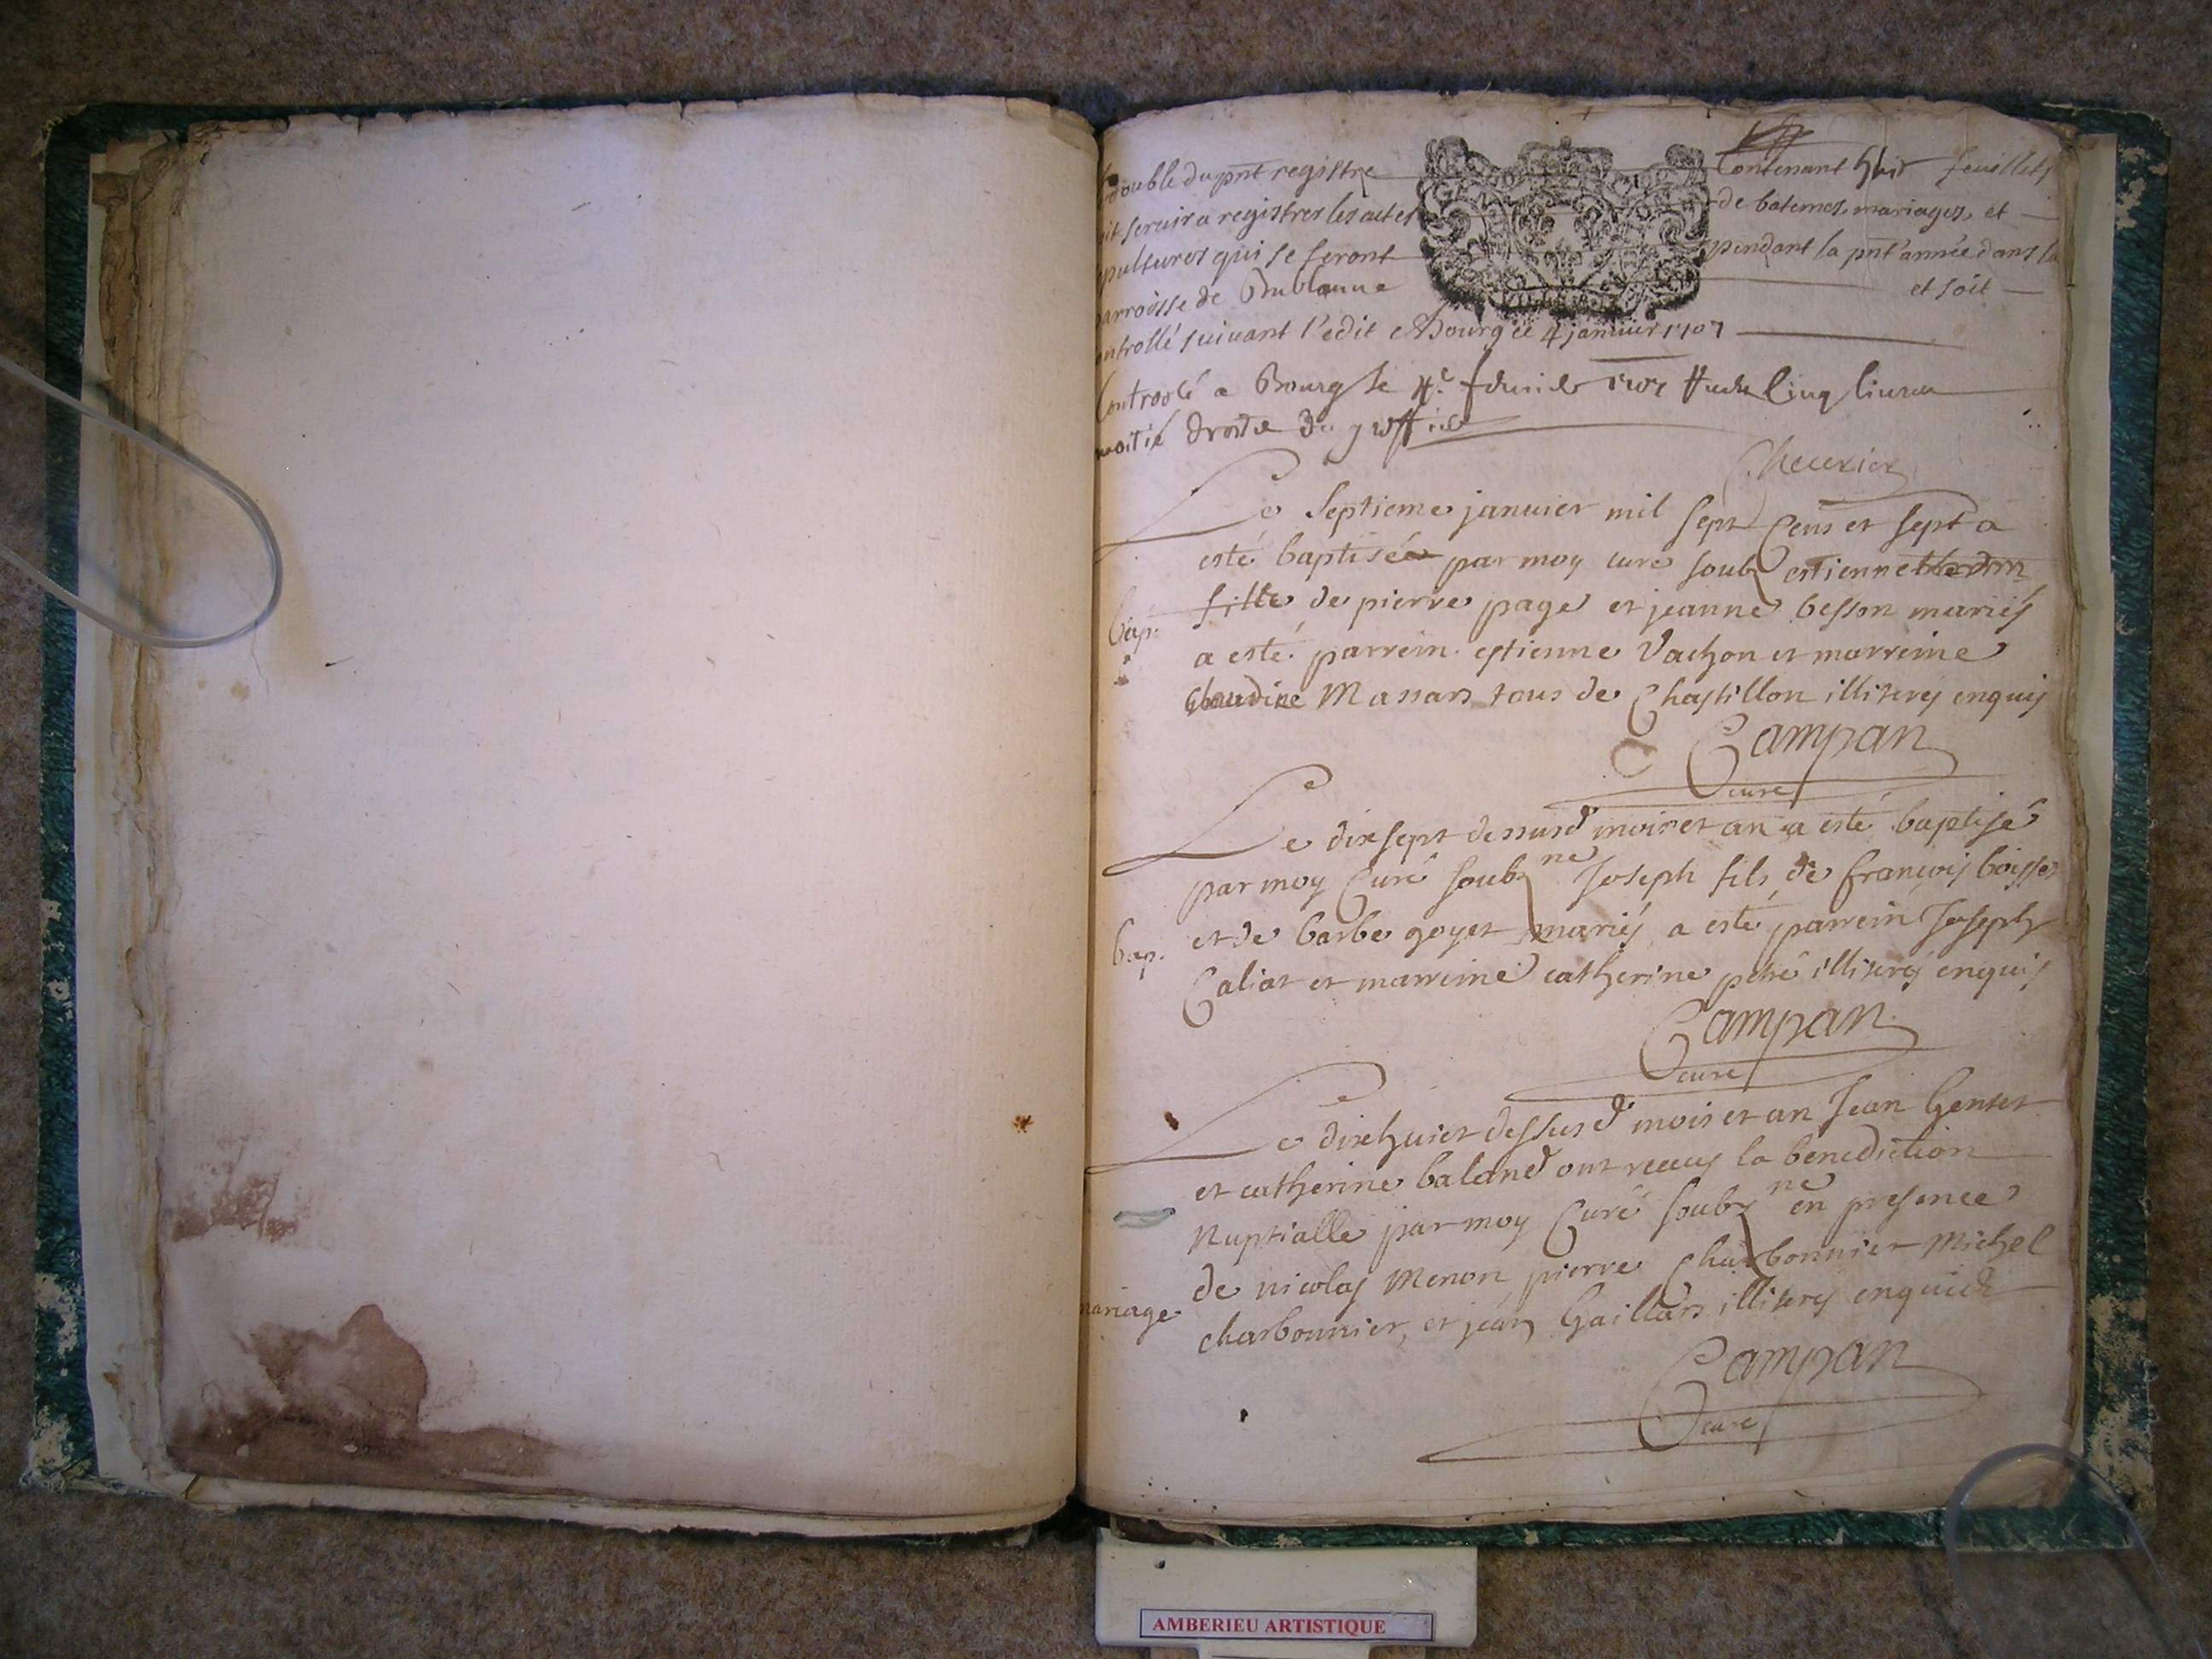 double du pnt registre contenant huit feuillets
servir a registrer les actes de batemes, mariages, et
qui se feront pendant la pnt année dans la
parroisse de et soit
controllé suivant l'edit a Bourg ce 4 janvier 1707
Controolé a Bourg le 4e 1707 cinq livres
moitié droits du greffier
Cheverier
Le septieme janvier mil sept cens et sept a
esté baptisée par moy curé soubz estienne
fille de pierre page et jeanne besson mariés
bap. a esté parrein estienne Vachon et marreine
Claudine Massars tous de Chastillon illiterés enquis
Campan
curé
Le dixsept dessusd mois et an a esté baptisé
par moy Curé soubzne Joseph fils de françois boisset
bap. et de barbe goyet mariés a esté parrein Joseph
Caliat et marreine catherine petre illiterés enquis
Campan
curé
Le dixhuict dessusd mois et an Jean Gentet
et catherine baland ont receus la benediction
Nuptialle par moy Curé soubzne en presence
de nicolas Menon, pierre Charbonnier Michel
mariage charbonnier, et jean Gaillars illiterés enquis
Campan
curé
AMBERIEU ARTISTIQUE